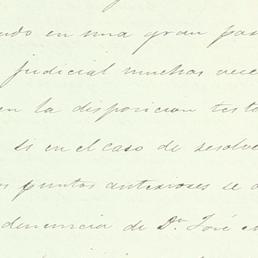 ando en una gran par
judicial muchas vece
en la disposicion testa
si en el caso de resolve
os puntos anteriores se d
denuncia de Dn José M